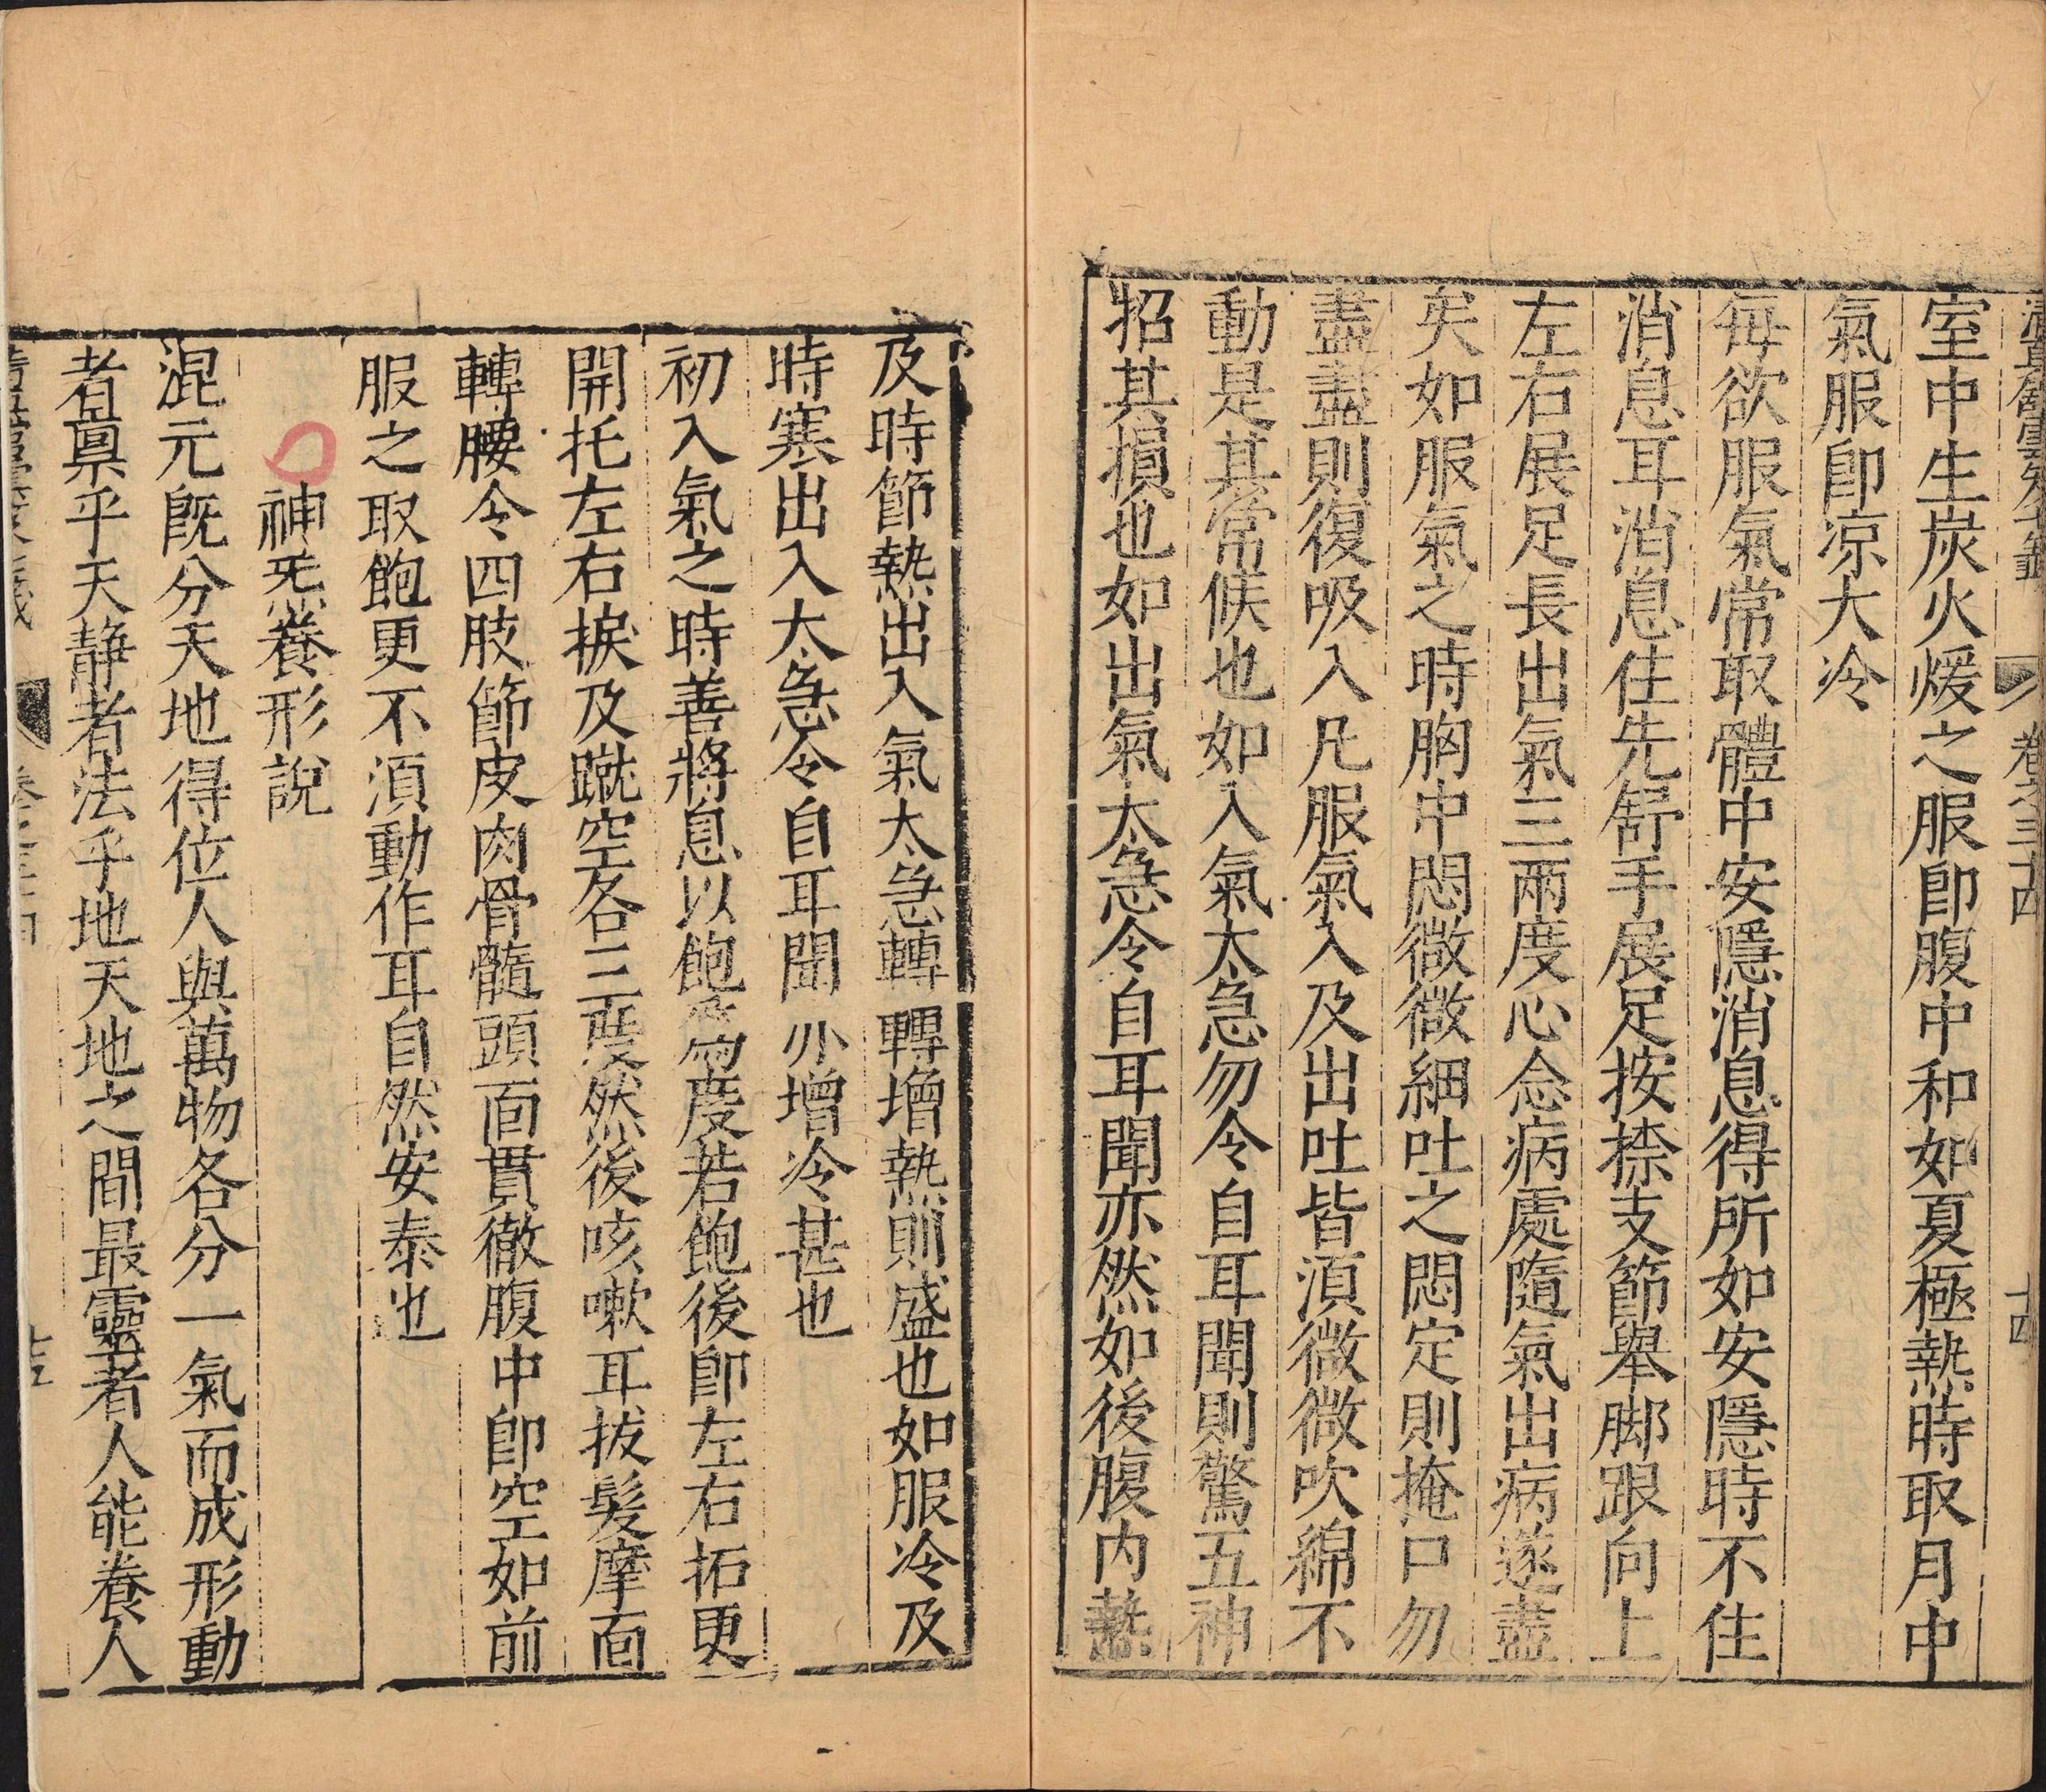 卷三十四
十四
室中生炭火煖之服卽腹中和如夏極熱時取月中
氣服卽凉大冷
每欲服氣常取體中安隱消息得所如安隱時不住
消息耳消息住先舒手展足按捺支節舉脚跟向上
左右展足長出氣三兩度心念病處隨氣出病遂盡
矣如服氣之時胸中悶微微細吐之悶定則掩口勿
盡盡則復吸入凡服氣入及出吐皆湏微微吹綿不
動是其常候也如入氣太急勿令自耳聞則驚五神
招其損也如出氣太急令自耳聞亦然如後腹內熱
及時節熱出入氣太急轉轉增熱則盛也如服冷及
時寒出入太急令自耳聞亦增冷甚也
初入氣之時善將息以飽爲度若飽後卽左右拓更
開托左右捩及蹴空各三度然後咳嗽耳拔髮摩面
轉腰令四肢節皮肉骨髓頭面貫徹腹中卽空如前
服之取飽更不湏動作耳自然安泰也
神炁養形說
混元旣分天地得位人與萬物各分一氣而成形動
者稟乎天靜者法乎地天地之間最靈者人能養人